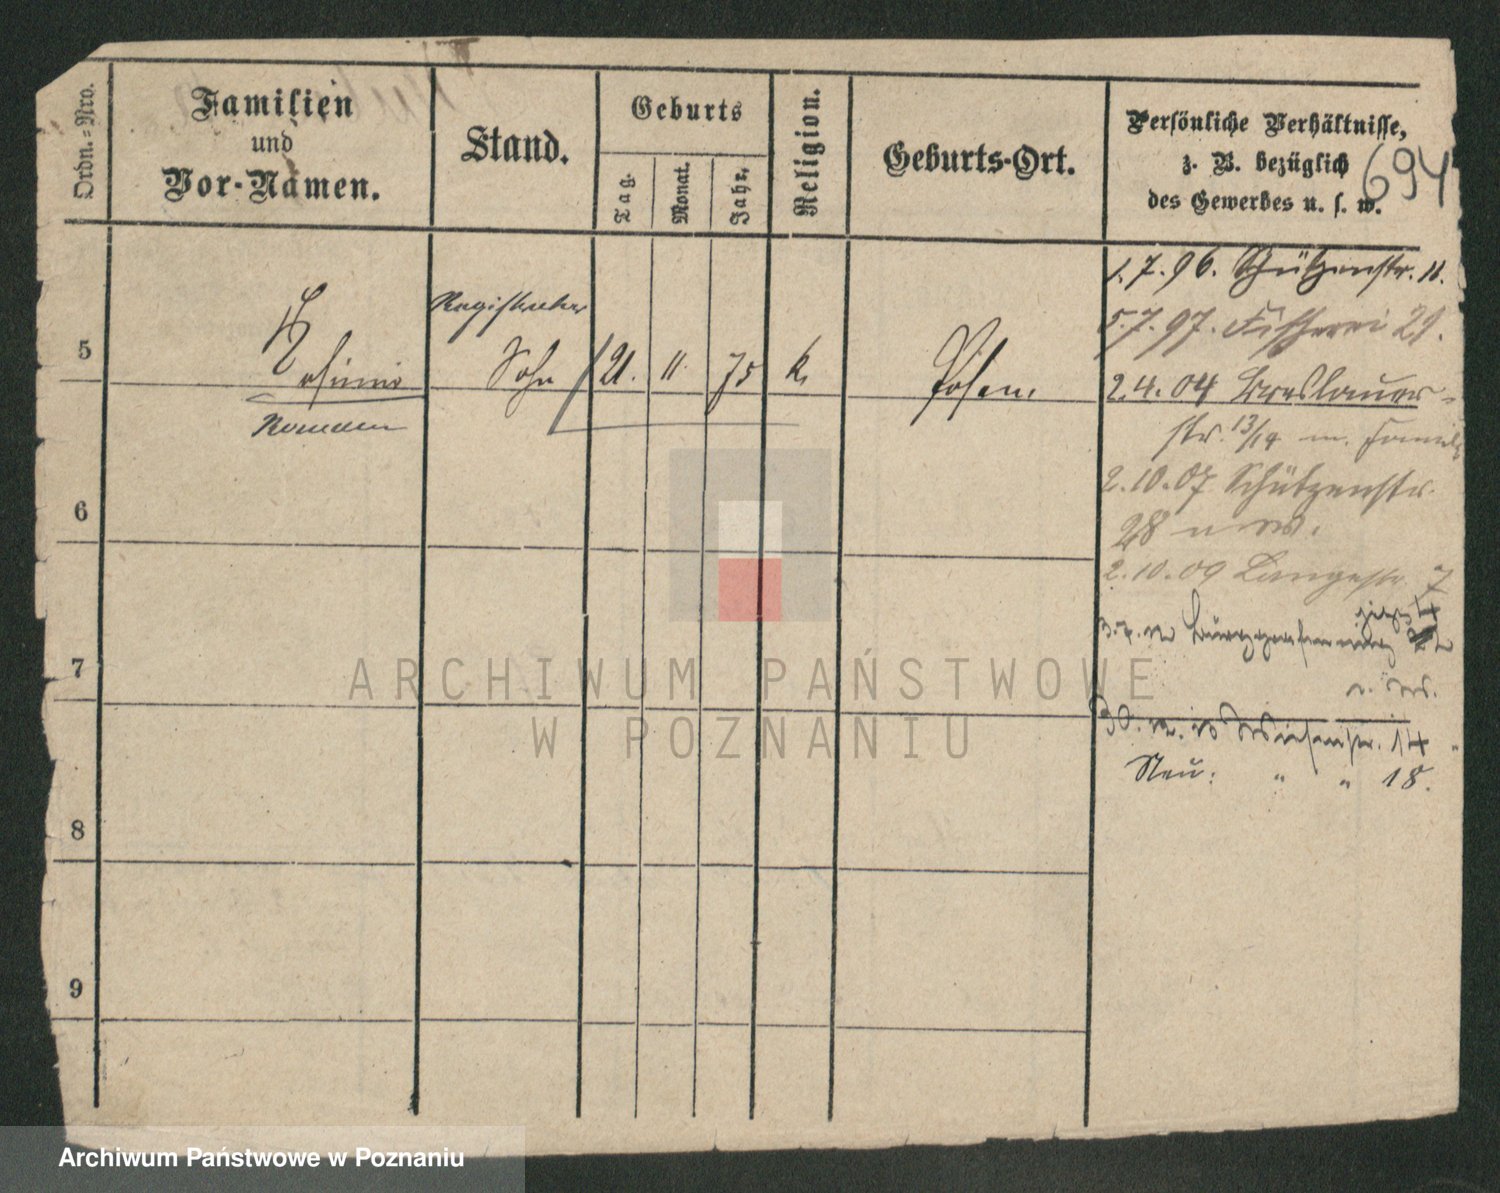 Ordn.=Nro.
Familien
und
Vor-Namen.
Stand.
Geburts
Tag.
Monat.
Jahr.
Religion.
Geburts-Ort.
Persönliche Verhältnisse,
z. B. bezüglich
des Gewerbes u. s. w.
694
5
Sohn
21.
11.
75
k.
Posen.
1.7.96. Schützenstr. 11.
5.7.97. Fischerei 21.
2.4.04 Breslauer-
str. 13/14 m. Famil
2.10.07 Schützenstr.
28
2.10.09 Langestr. 7
14
30. 14
Neu: " " 18.
6
7
8
9
ARCHIWUM PAŃSTWOWE
W POZNANIU
Archiwum Państwowe w Poznaniu